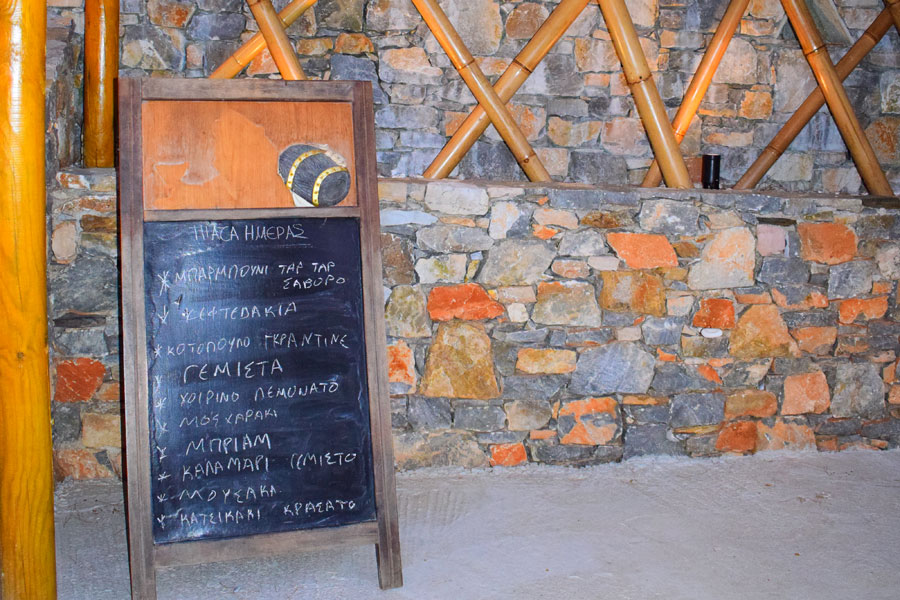 ΠΙΑΣΑ ΗΜΕΡΑΣ
* ΜΠΑΡΜΠΟΥΝΙ ΤΑΡ ΤΑΡ
ΣΑΒΟΡΟ
* ΚΕΦΤΕΔΑΚΙΑ
* ΚΟΤΟΠΟΥΛΟ ΓΚΡΑΝΤΙΝΕ
* ΓΕΜΙΣΤΑ
* ΧΟΙΡΙΝΟ ΛΕΜΟΝΑΤΟ
* ΜΟΣΧΑΡΑΚΙ
* ΜΠΡΙΑΜ
* ΚΑΛΑΜΑΡΙ ΓΕΜΙΣΤΟ
* ΜΟΥΣΑΚΑ
* ΚΑΤΣΙΚΑΚΙ ΚΡΑΣΑΤΟ